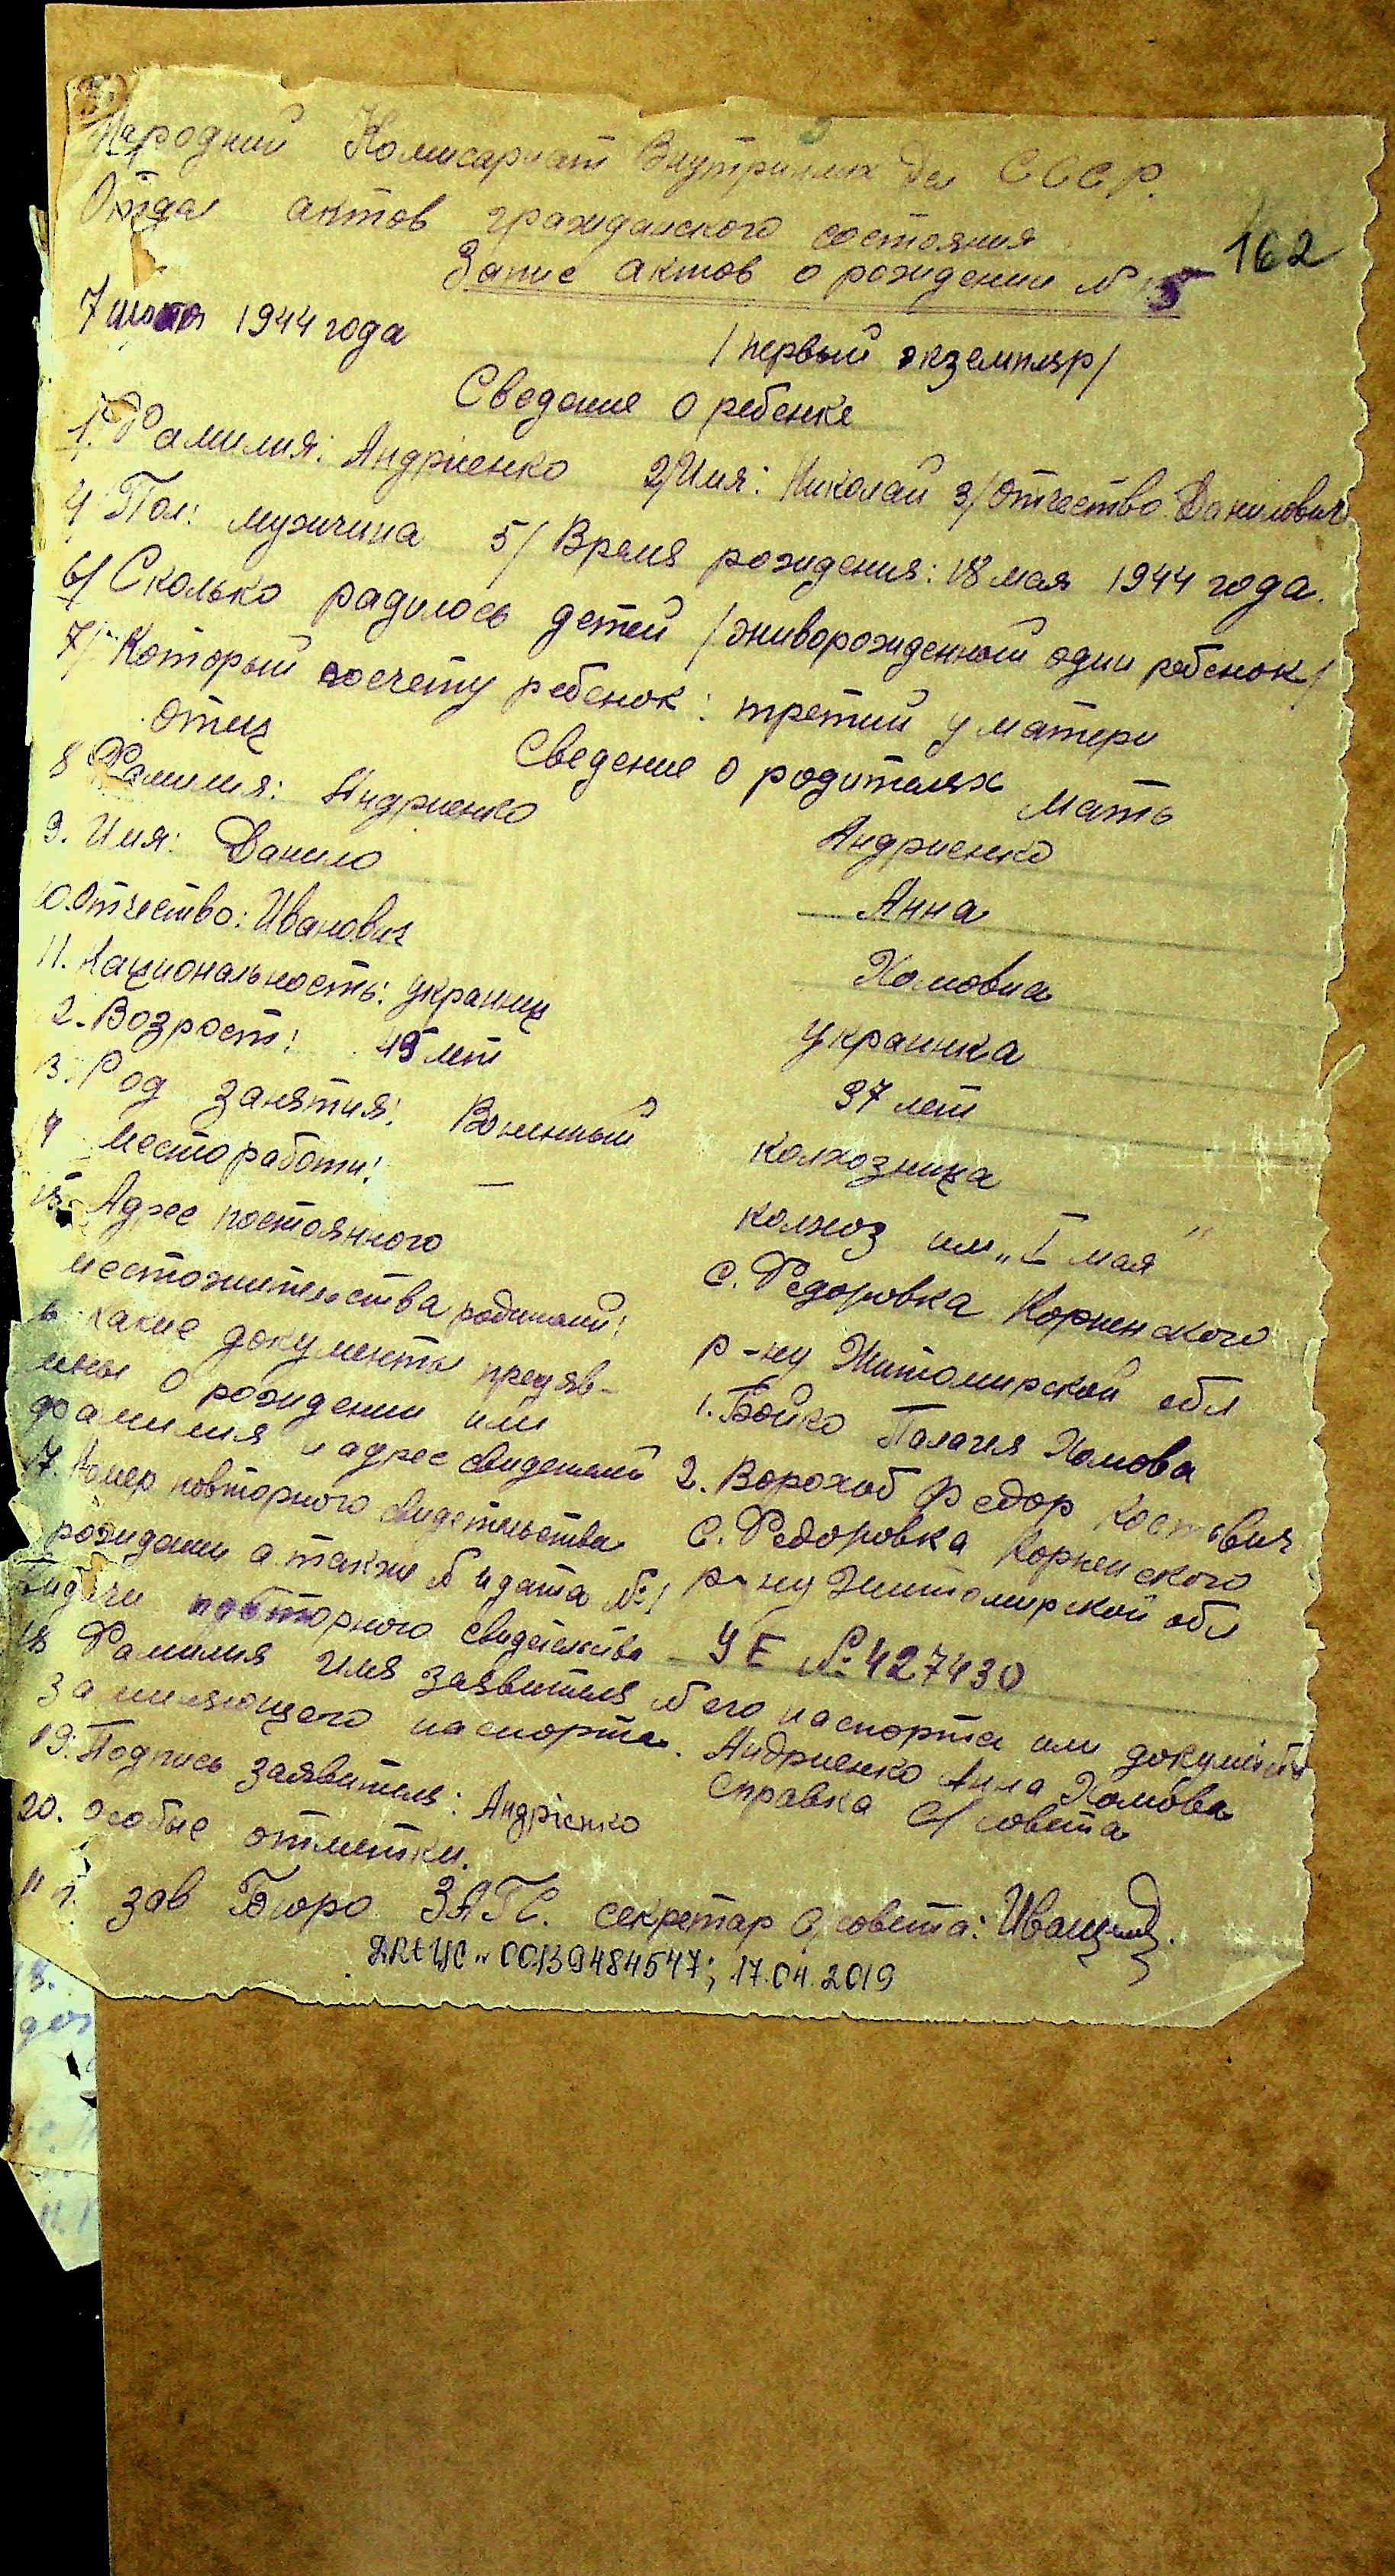 Народний Комисариат Внутриних Дел СССР.
Отдел актов гражданского состояния
162
Запис актов о рождении № 5
7 1944 года
/первый экземпляр/
Сведение о ребенке
1. Фамилия: Андриенко 2/Имя: Николай 3/Отчество Данилович
4/ Пол: мужчина 5/ Время рождения: 18 мая 1944 года.
6/ Сколько радилось детей /живорожденный один ребенок/
7/ Который посчету ребенок: третий у матери
Сведение о родителях
отец мать
8 Фамилия: Андриенко Андриенко
9. Имя: Данило Анна
10. Отчество: Иванович Хомовна
11. Национальность: украинец украинка
2. Возрост: 49 лет 37 лет
3. Род занятия: Военный колхозница
4 Место работи: — колхоз им „I мая"
15. Адрес постоянного с. Федоровка Корненского
местожительства р-ну Житомирской обл
какие документы предяв- 1. Бойко Палагея Хомовна
лены о рождении или 2. Ворохоб Федор
фамилия и адрес свидетелей с. Федоровка Корненского
р-ну Житомирской обл
17. Номер повторного свидетельства
рождении а также № и дата №
видачи повторного свидетельства УЕ № 427430
18 Фамилия имя заявителя № его паспорта или документа
заменяющего паспорта. Андриенко Анна Хомовна
справка с/совета
19. Подпись заявителя: Андрієнко
20. Особые отметки.
зав Бюро ЗАГС. секретар с/совета:
00139484547; 17.04.2019